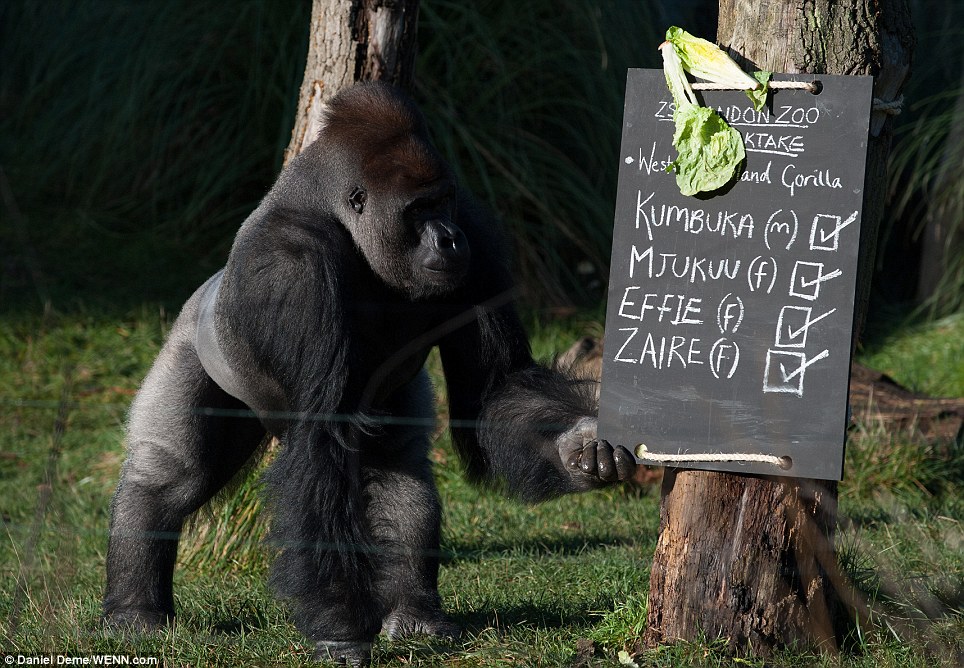 ZS NDON ZOO
KTAKE
• West and Gorilla
KUMBUKA (m)
MJUKUU (f)
EFFIE (f)
ZAIRE (F)
© Daniel Deme/WENN.com